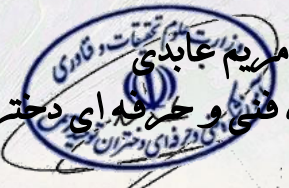 مریم عابدی
فنی و حرفه ای دختر
وزارت علوم تحقیقات و فناوری
فنی و حرفه‌ای دختران